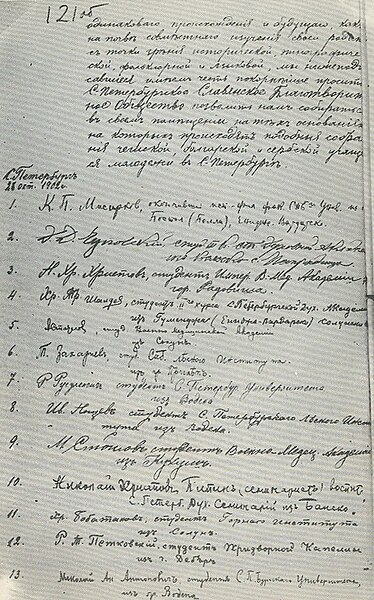 121 об
одинаковаго происхождения и будущаи, какъ
на почвѣ совмѣстнаго изучения своей роди
съ точки зрѣния исторической, этнографиче
ской, фольклорной и языковой, мы нижепод
савшиеся имѣемъ честь покорнѣйше просить
С. Петербургское Славянское Благотворит
ное Общество позволить намъ собирать
въ своемъ помѣщении на тѣхъ основания
на которыхъ происходятъ подобныя собра
ния чешской, болгарской и сербской учаще
ся молодежи въ С. Петербургѣ.
С. Петербургъ
28 окт. 1902 г.
1. К. П. Мисирковъ, окончивший ист.-фил. фак. СПБ Унив. изъ
Постолъ (Пелла), Енидже-Вардарско
2. Д. Д. Чуповский, студ.
3. Н. Хр. Христовъ, студентъ Импер. В. Мед. Академии
гор. Радовишъ.
4. Хр. Тр. Шалдевъ, студентъ курса С. Петербургской Дух. Академии
изъ Гуменджа (Енидже-Вардарска) солунско
5. студ. Военно медицинской Академии
изъ Солунъ.
6. П. Захариевъ, студ. Спб. Лѣсного Института
изъ
7. Р. студентъ С. Петербур. Университета
изъ Водена
8. Ив. Нацевъ студентъ С. Петербургскаго Лѣсного Инсти
тута изъ Водена.
9. М. Стоиловъ студентъ Военно-Медиц. Академии
изъ Кукушъ.
10. Николай Христовъ Пипинъ, семинаристъ! воспит.
С. Петерб. Дух. Семинарии изъ Банско
11. Гр. студентъ Горнаго института
изъ Солунъ.
12. Р. Т. Петковский, студентъ Придворной Капеллы
изъ г. Дебѣръ
13. Николай Ан. студентъ С. П. Бургскаго Университета,
изъ гр. Водена